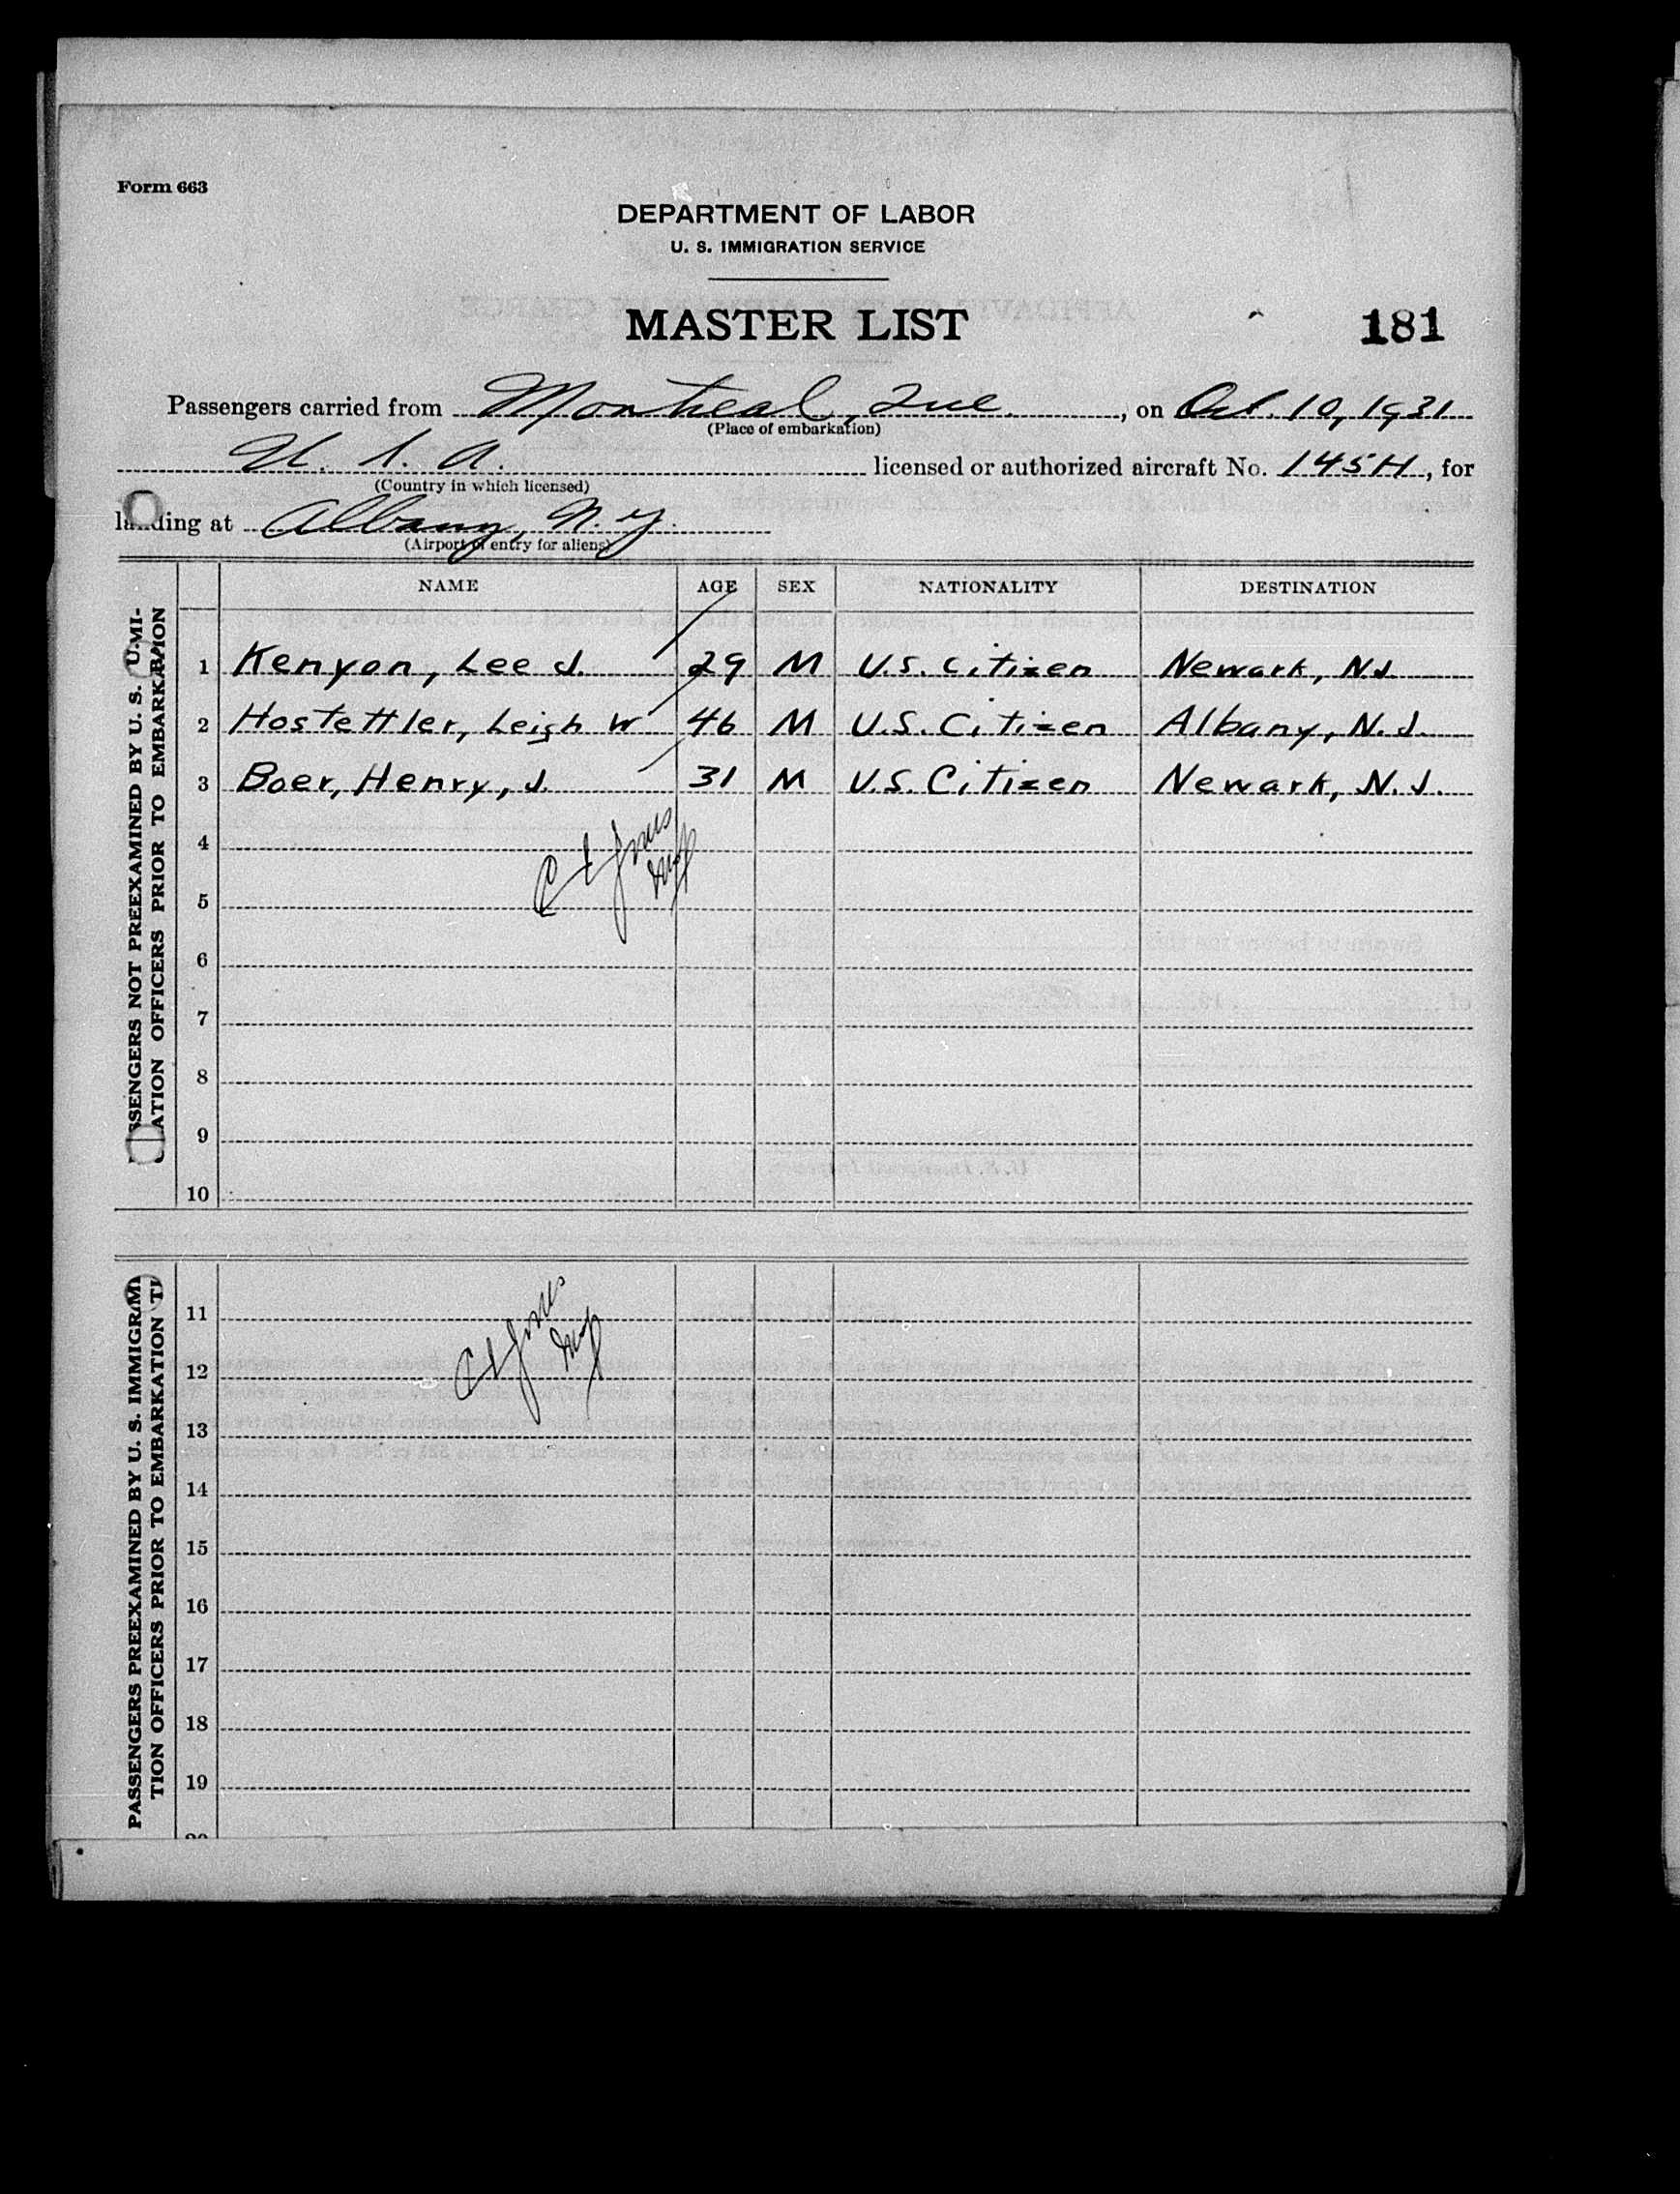 Form 663
DEPARTMENT OF LABOR
U. S. IMMIGRATION SERVICE
MASTER LIST
181
Passengers carried from Montreal, Que. , on Oct. 10, 1931
(Place of embarkation)
U. S. A. licensed or authorized aircraft No. 145H, for
(Country in which licensed)
landing at Albany, N. Y.
(Airport of entry for aliens)
NAME AGE SEX NATIONALITY DESTINATION
1 Kenyon, Lee J. 29 M U.S. Citizen Newark, N.J.
2 Hostettler, Leigh W 46 M U.S. Citizen Albany, N.J.
3 Boer, Henry, J. 31 M U.S. Citizen Newark, N.J.
4
5
6
7
8
9
10
SSENGERS NOT PREEXAMINED BY U. S.
ATION OFFICERS PRIOR TO EMBARKATION
11
12
13
14
15
16
17
18
19
PASSENGERS PREEXAMINED BY U. S. IMMIGRA
TION OFFICERS PRIOR TO EMBARKATION